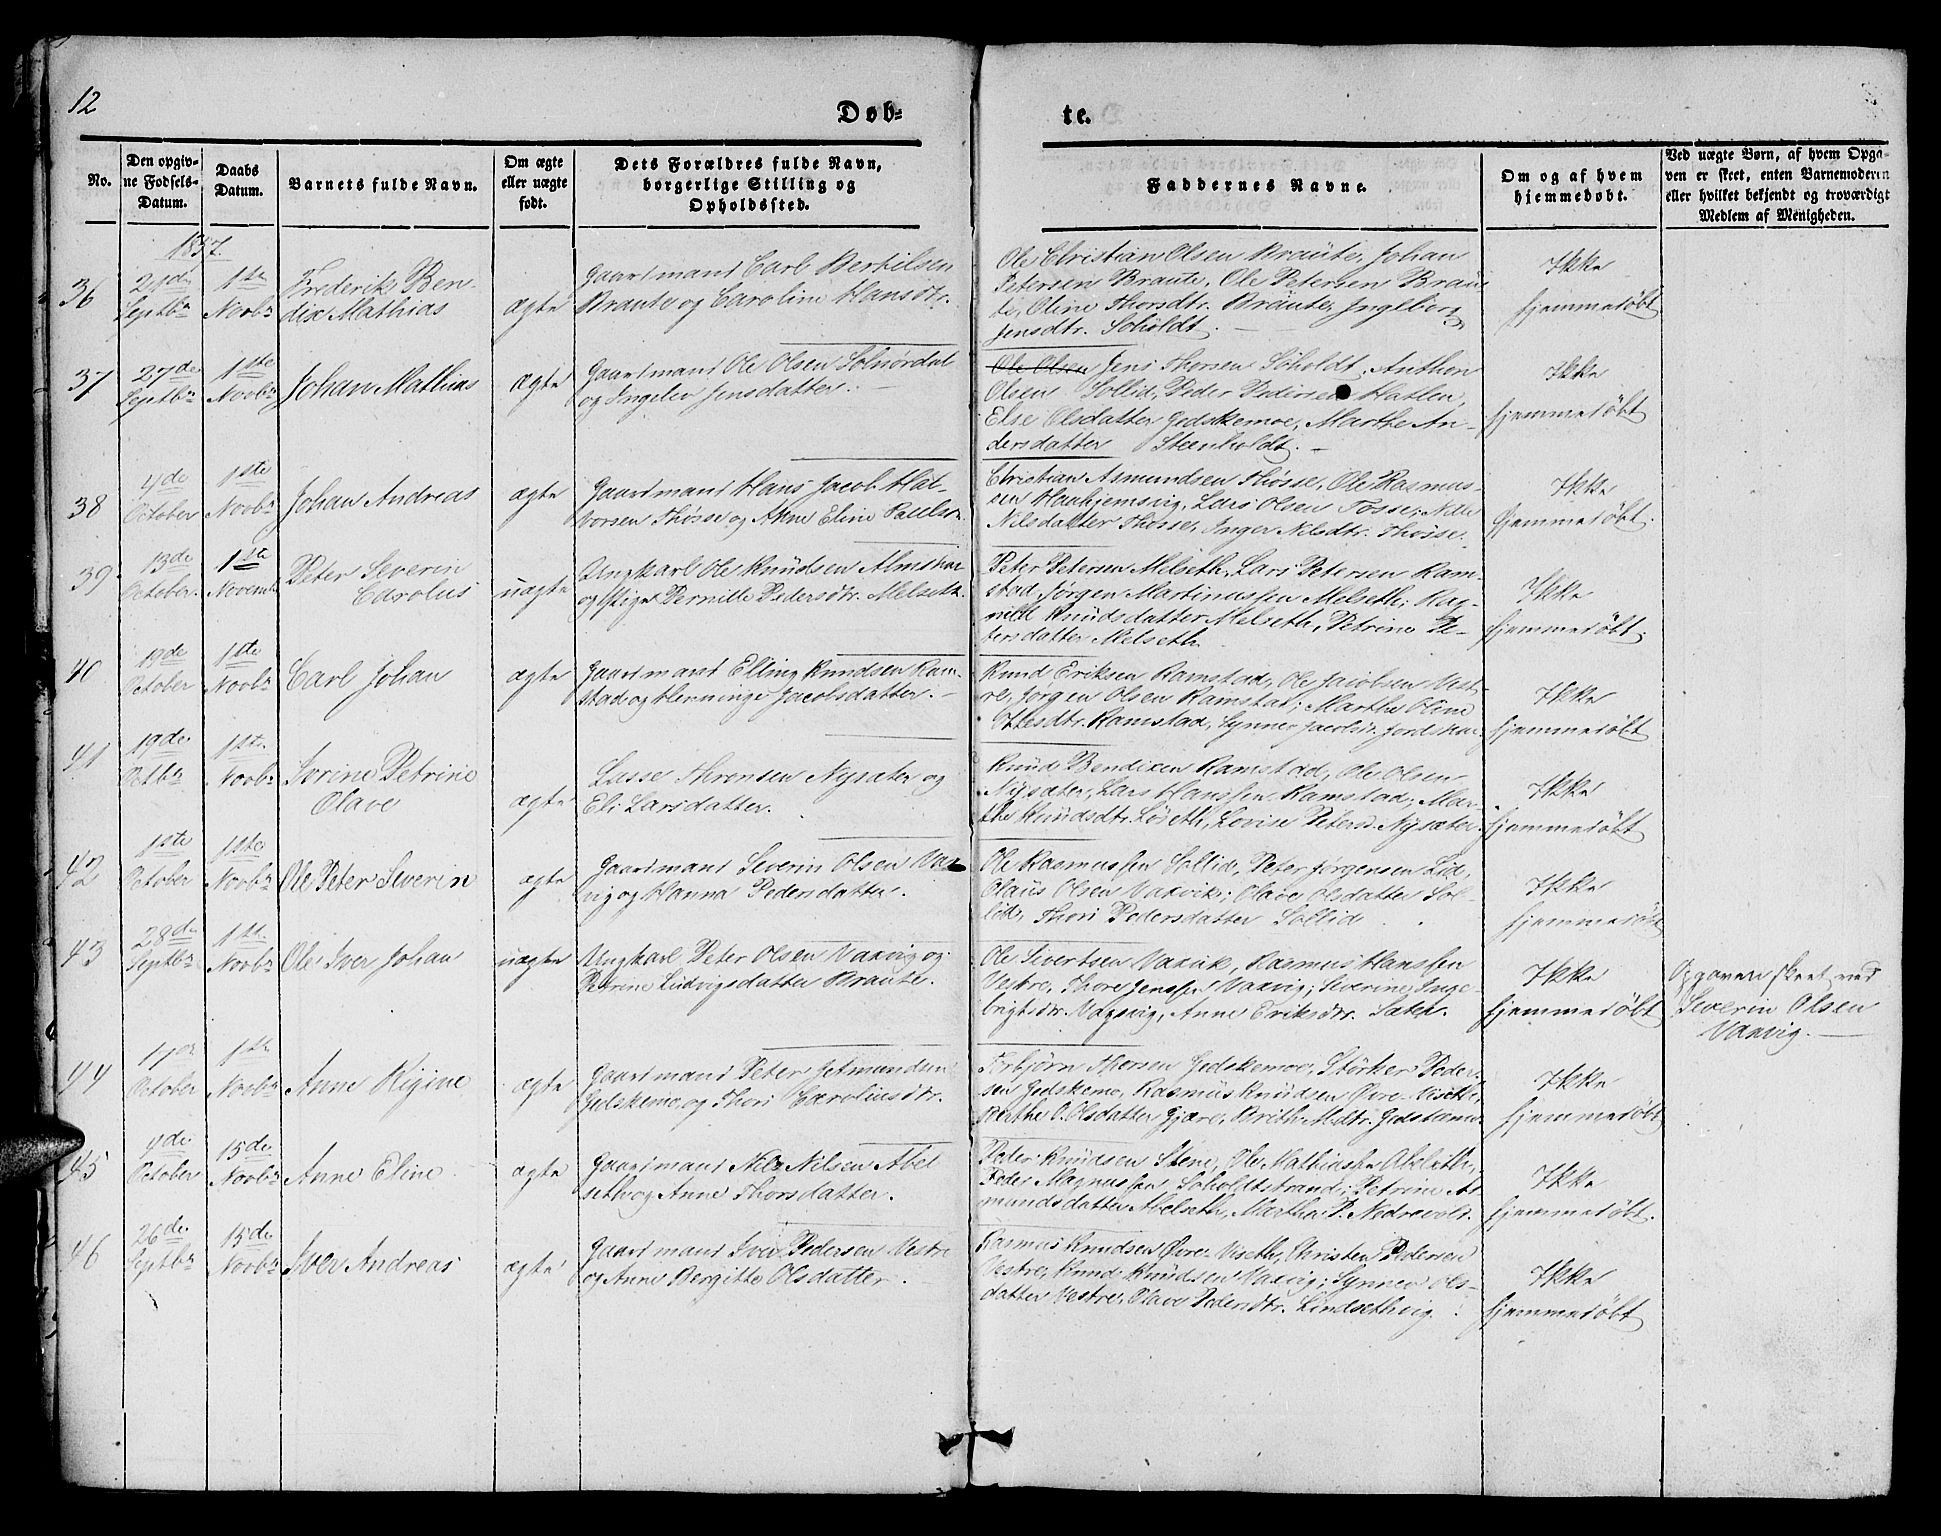 12
Døb-
te.
No.
Den opgiv-
ne Fødsels-
Datum.
Daabs
Datum.
Barnets fulde Navn.
Om ægte
eller uægte
født.
Dets Forældres fulde Navn,
borgerlige Stilling og
Opholdssted.
Faddernes Navne.
Om og af hvem
hjemmedøbt.
Ved uægte Børn, af hvem Opga-
ven er skeet, enten Barnemoderen
eller hvilket bekjendt og troværdigt
Medlem af Menigheden.
1857.
36
Septbr
Noobr
Frederik Ben-
dix Mathias
ægte
Gaardmand Carl Bertilsen
Braute og Caroline Hansdtr.
Ole Christian Olsen Braute, Johan
Petersen Braute, Ole Petersen Brau-
te, Oline Thorsdtr. Braute, Ingeborg
Jensdtr. Soholdt.
Ikke
hjemmedøbt
37
27de
Septbr
1ste
Noobr
Johan Mathias
ægte
Gaardmand Ole Olsen Solnørdal
og Ingelev Jensdatter.
Ole Olsen Jens Thorsen Soholdt, Anthon
Olsen Sollid, Peder Pedersen Hatlen,
Else Olsdatter Gidskemoe, Marthe An-
dersdatter Steenholdt.
Ikke
hjemmedøbt
38
4de
October
1ste
Noobr
Johan Andreas
ægte
Gaardmand Hans Jacob Hal-
vorsen Thøsse og Anne Eline Paulsd.
Christian Asmundsen Thøsse, Ole Rasmus-
sen Haahjemsvig, Lars Olsen Fosse, Nille
Nilsdatter Thøsse, Inger Nilsdtr. Thøsse.
Ikke
hjemmedøbt.
39
13de
October
1ste
Novemb
Peter Severin
Carolus
uægte
Ungkarl Ole Knudsen
og Pige Pernille Pedersdtr. Melseth.
Peter Petersen Melseth, Lars Petersen Ram-
stad, Jørgen Martinussen Melseth; Rag-
nild Knudsdatter Melseth, Petrine Pe-
tersdatter Melseth.
Ikke
hjemmedøbt.
40
19de
October
1ste
Noobr
Carl Johan
ægte
Gaardmand Elling Knudsen Ram-
stad og Henninge Jacobsdatter.
Knud Eriksen Ramstad, Ole Jacobsen Vest-
re, Jørgen Olsen Ramstad; Marthe Oline
Ottesdtr. Ramstad, Synnev Jacobsd.
Ikke
hjemmedøbt
41
19de
Octbr
1ste
Noobr
Sorine Petrine
Olave
ægte
Lasse Nysæter og
Eli Larsdatter.
Knud Bendixen Ramstad, Ole Olsen
Nysæter, Lars Hanssen Ramstad; Mar-
the Knudsdtr. Løseth, Lovise Petersd. Nysæter.
Ikke
hjemmedøbt
42
1ste
October
1ste
Noobr
Ole Peter Severin
ægte
Gaardmand Severin Olsen Vax-
vig og Hanna Pedersdatter.
Ole Rasmussen Sollid, Peter Jørgensen Lid,
Olaus Olsen Vaxvik; Olave Olsdatter Sol-
lid, Thori Pedersdatter Sollid
Ikke
hjemmedøbt
43
28de
Septbr
1ste
Noobr
Ole Iver Johan
uægte
Ungkarl Peter Olsen Vaxvig og
Petrine Ludvigsdatter Braute.
Ole Sivertsen Vaxvik, Rasmus Hanssen
Vestre, Thore Jenssen Vaxvig; Severine Inge-
brigtsdtr. Vagsvig, Anne Eriksdtr. Sæter.
Ikke
hjemmedøbt
Opgaven skeet ved
Severin Olsen
Vaxvig.
44
October
1ste
Noobr
Anne Rigine
ægte
Gaardmand Peter
Gidskemo og Thori Caroliusdtr.
Thorsen Gidskemoe, Størker Peder-
sen Gidskemo, Rasmus Knudsen Øvre-Viseth,
Marthe O. Olsdatter Gjære, Brith
Ikke
hjemmedøbt
45
4de
October
15de
Noobr
Anne Eline
ægte
Gaardmand Nils Nilsen Abel-
seth og Anne Thorsdatter.
Peder Knudsen Stene, Ole Mathiassen Abelseth,
Peder Magnussen Soholdtstrand; Petrine As-
mundsdatter Abelseth, Marthe P. Nedrevold.
Ikke
hjemmedøbt.
46
26de
Septbr
15de
Noobr
Iver Andreas
ægte
Gaardmand Iver Pedersen Vestre
og Anne Bergitte Olsdatter.
Rasmus Knudsen Øvre-Viseth, Christen Pedersen
Vestre, Knud Knudsen Vaxvig; Synnev Ols-
datter Vestre, Olave Pedersdtr. Lindsethvig.
Ikke
hjemmedøbt